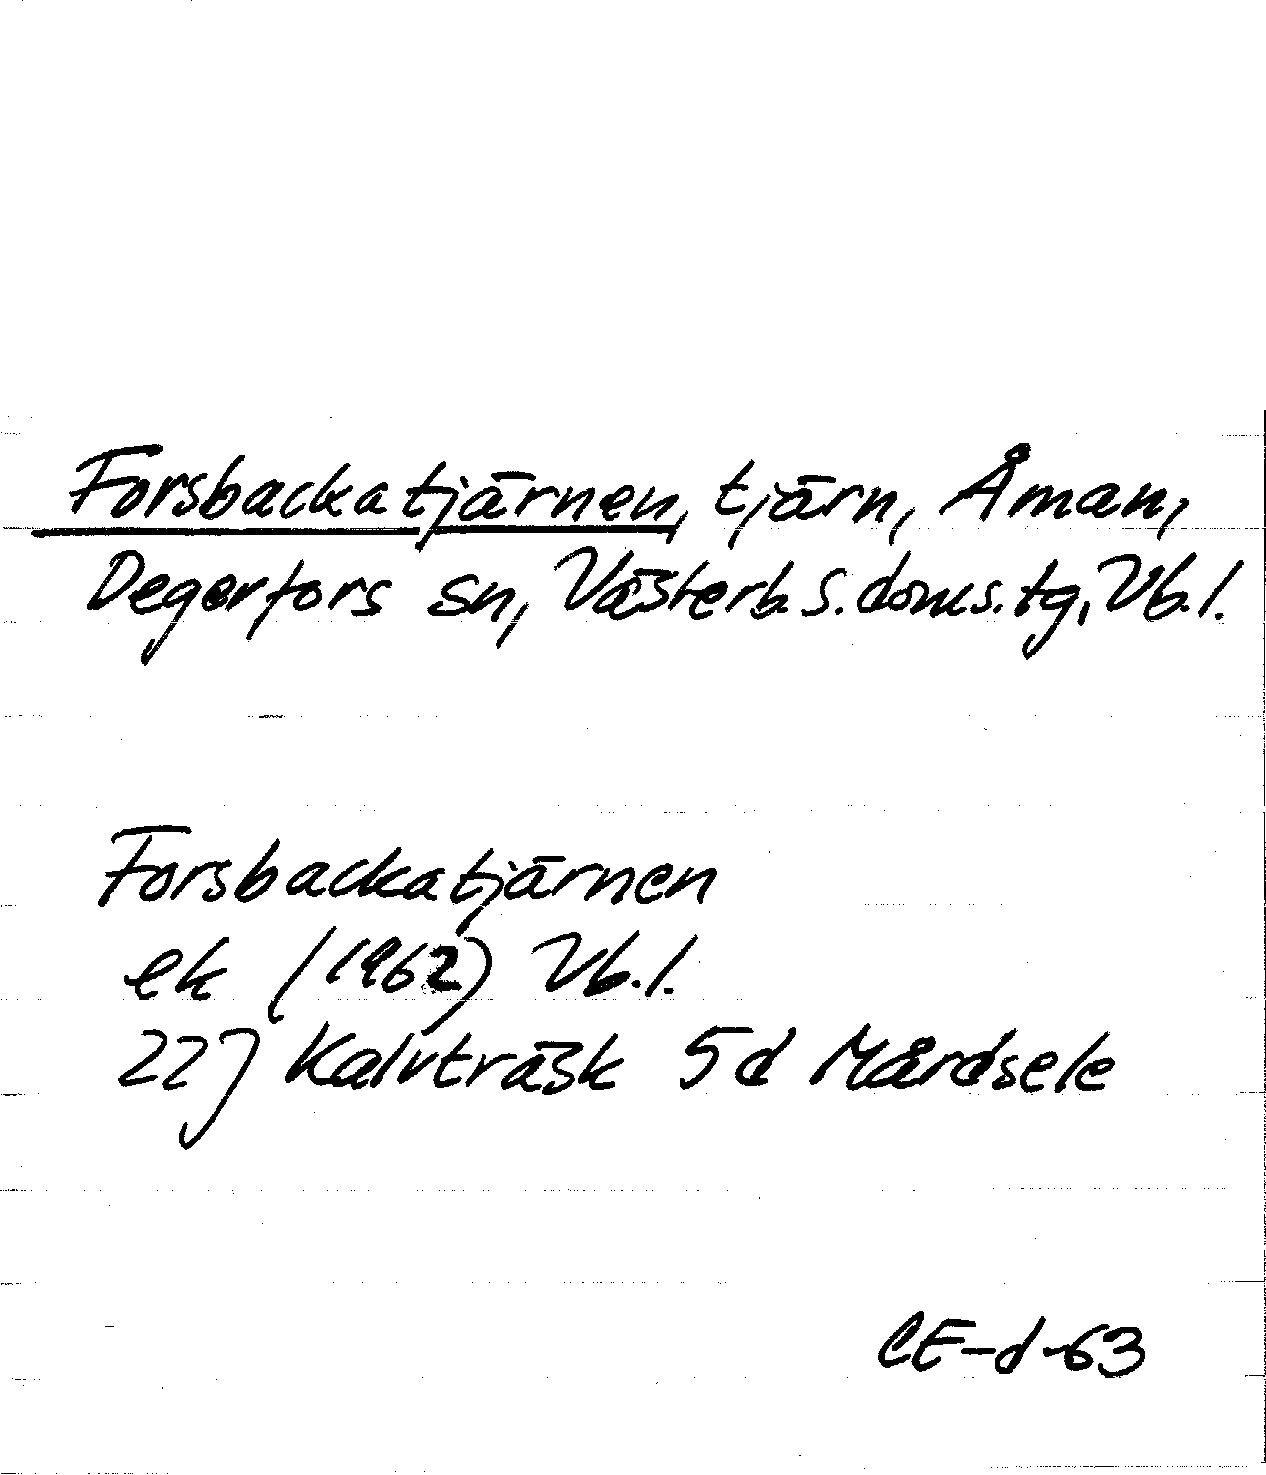 Forsbackatjärnen, tjärn, Åman,
Degerfors sn, Västerb.s.doms.tg, Vb.l.
Forsbackatjärnen
ek (1962) Vb.l.
22J Kalvträsk 5d Mårdsele
CE-d-63